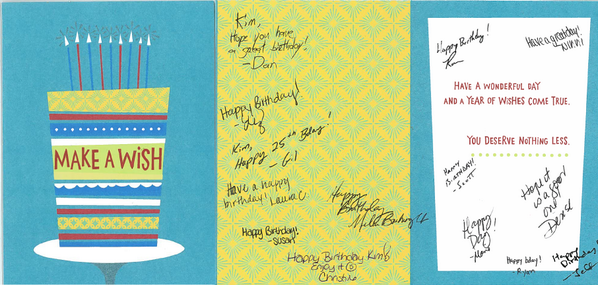 MAKE A WISH
Kim,
Hope you have
a great birthday!
-Dan
Happy Birthday!
-Liz
Kim,
Happy 25th Bday!
Have a happy
birthday! Laura C
Happy Birthday!
-Susan
Happy
Birthday
Happy Birthday Kim!
Enjoy it
Happy Birthday!
Have a great bday!
HAVE A WONDERFUL DAY
AND A YEAR OF WISHES COME TRUE.
YOU DESERVE NOTHING LESS.
Happy
Birthday!
-Scott
Hope it
is a great
one
Happy
Day!
Happy bday!
-Ryan
Happy
Birthday!
-Jeff